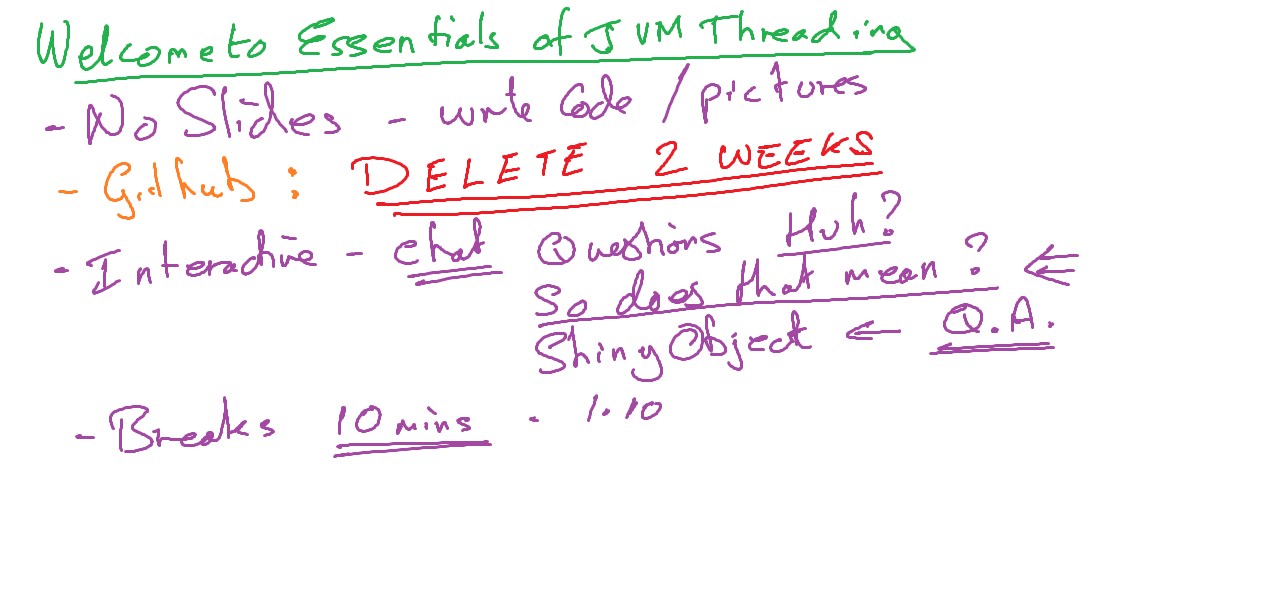 Welcome to Essentials of JVM Threading
- No Slides - write Code / pictures
- Github : DELETE 2 WEEKS
- Interactive - chat Questions Huh?
So does that mean ? ⇐
Shiny Object ← Q.A.
- Breaks 10 mins - 1.10